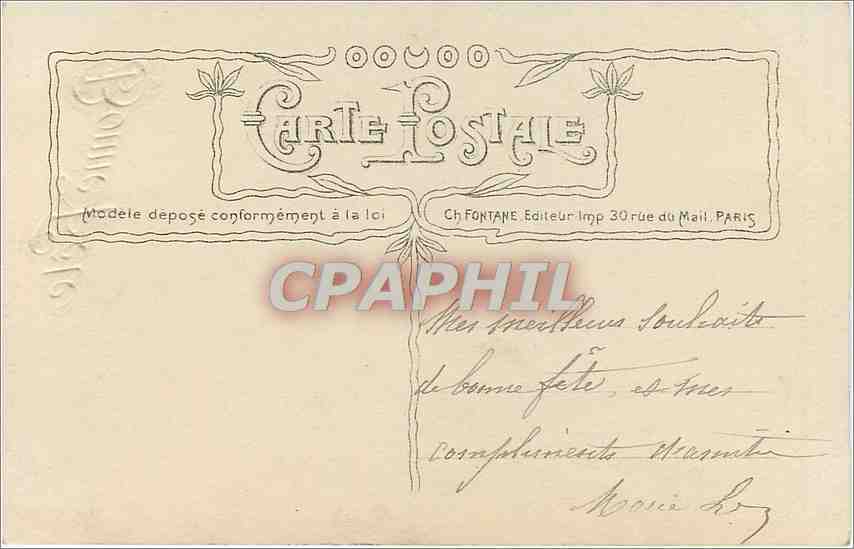 CARTE POSTALE
Modèle déposé conformément à la loi
Ch. FONTANE. Editeur Imp 30 rue du Mail. PARIS
Bonne Fête
CPAPHIL
Mes meilleurs souhaits
de bonne fête, et mes
compliments d'amitié
Marie